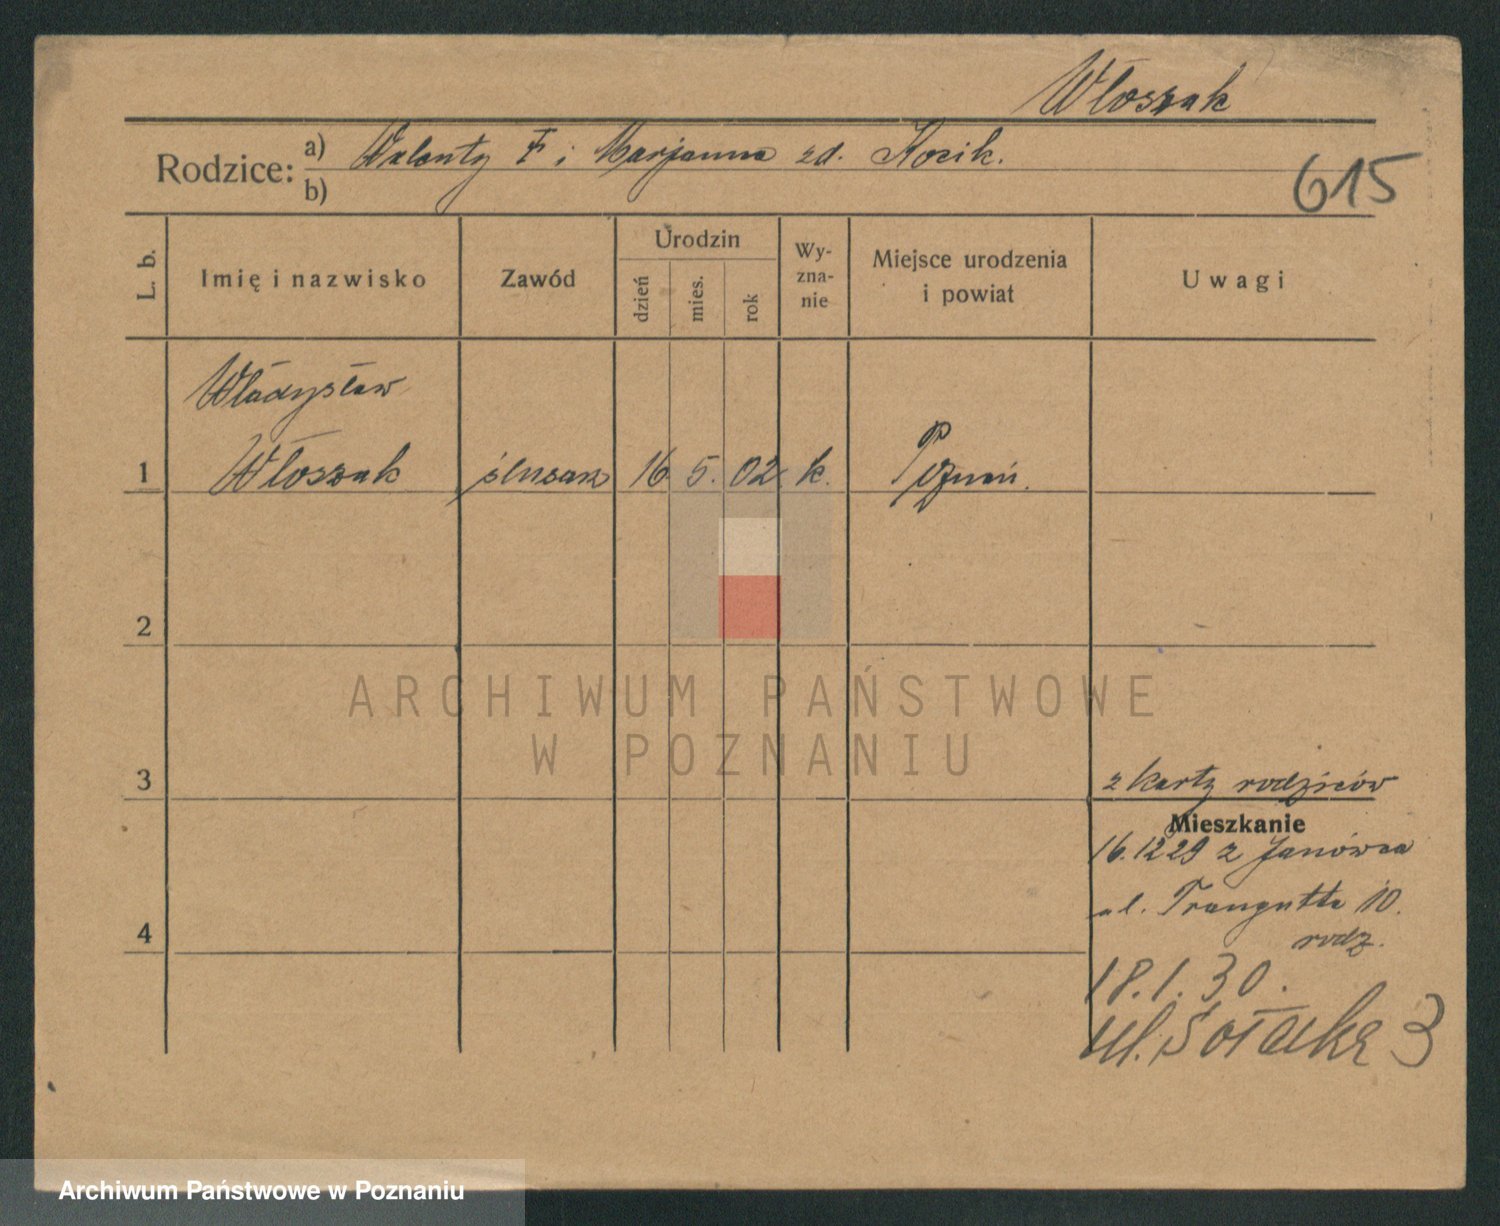 Włoszak
Rodzice: a) Walenty F i Marjanna zd. Kozik.
b)
615
L. b.
Imię i nazwisko
Zawód
Urodzin
dzień
mies.
rok
Wy-
zna-
nie
Miejsce urodzenia
i powiat
Uwagi
Władysław
1 Włoszak ślusarz 16 5. 02. k. Poznań.
2
ARCHIWUM PAŃSTWOWE
W POZNANIU
3
z karty rodziców
Mieszkanie
16.12 29 z Janówca
ul. Traugutta 10.
4
rodz.
18.1.30.
ul. Sołacka 3
Archiwum Państwowe w Poznaniu